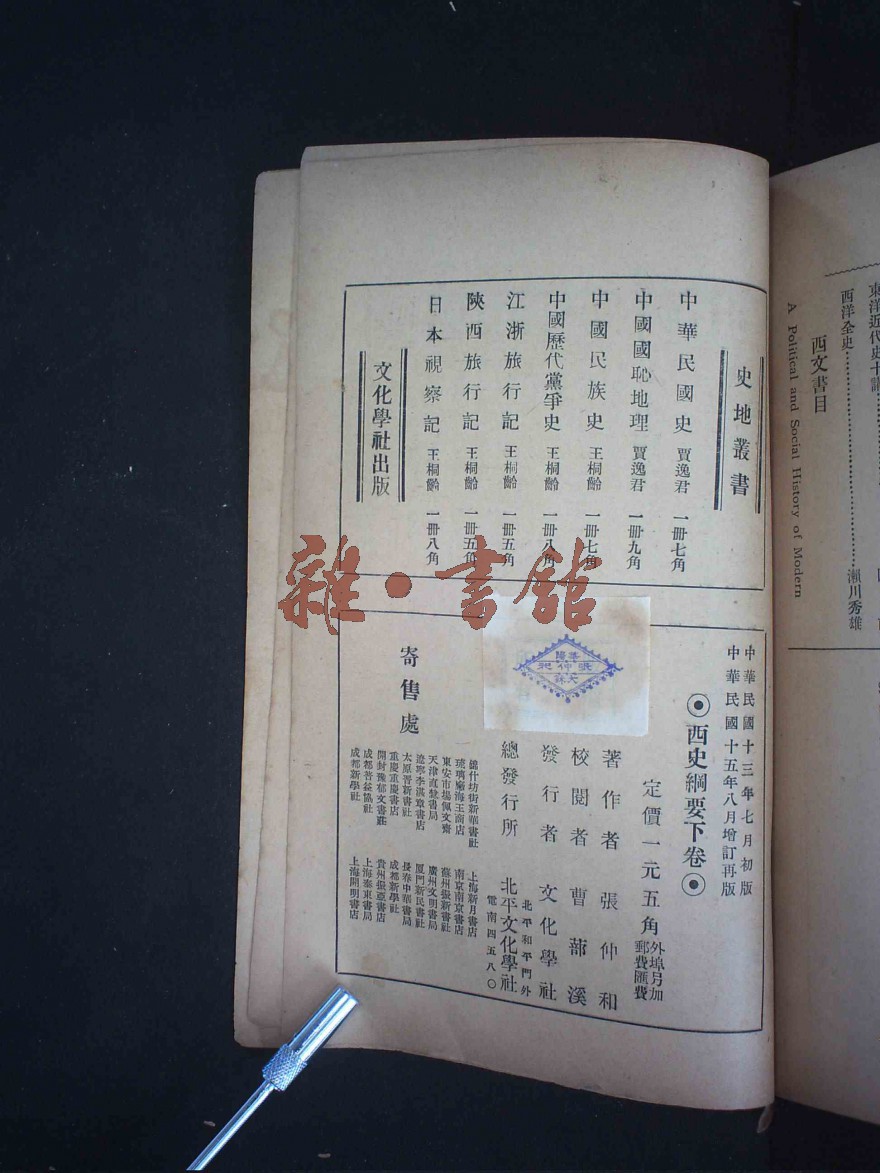 史地叢書
中華民國史 賈逸君 一冊七角
中國國恥地理 賈逸君 一冊九角
中國民族史 王桐齡 一冊七角
中國歷代黨爭史 王桐齡 一冊八角
江浙旅行記 王桐齡 一冊五角
陝西旅行記 王桐齡 一冊五角
日本視察記 王桐齡 一冊八角
文化學社出版
中華民國十三年七月初版
中華民國十五年八月增訂再版
西史綱要下卷
定價一元五角 外埠另加郵費匯費
著作者 張仲和
校閱者 曹 溪
發行者 文化學社
總發行所 北平和平門外 北平文化學社 電南四五八〇
寄售處
錦什坊街新華書社
琉璃廠海王商店
東安市場佩文齋
天津直隸書局
遼寧李湛章書店
太原晋新書社
重慶重慶書店
開封豫郁文書莊
成都普益協社
成都新學社
上海新月書店
南京南京書店
蘇州振新書社
廣州文明書局
厦門新民書社
長春中華書局
成都新學社
貴州振亞書店
上海泰東書局
上海開明書店
張仲和
雜·書館
東洋近代史十講
西洋全史 瀨川秀雄
西文書目
A Political and Social History of Modern